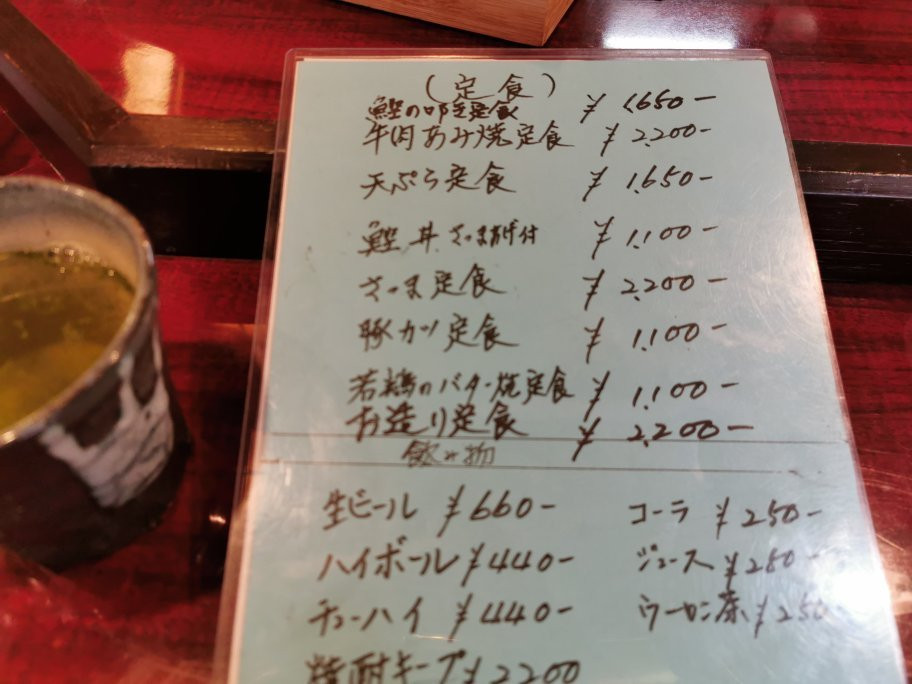 (定食)
鰹の叩き定食 ¥1,650-
牛肉あみ焼定食 ¥2,200-
天ぷら定食 ¥1,650-
鰹丼 さつまあげ付 ¥1,100-
さつま定食 ¥2,200-
豚カツ定食 ¥1,100-
若鶏のバター焼定食 ¥1,100-
お造り定食 ¥2,200-
飲み物
生ビール ¥660- コーラ ¥250-
ハイボール ¥440- ジュース ¥250-
チューハイ ¥440- ウーロン茶 ¥250
焼酎キープ ¥2200